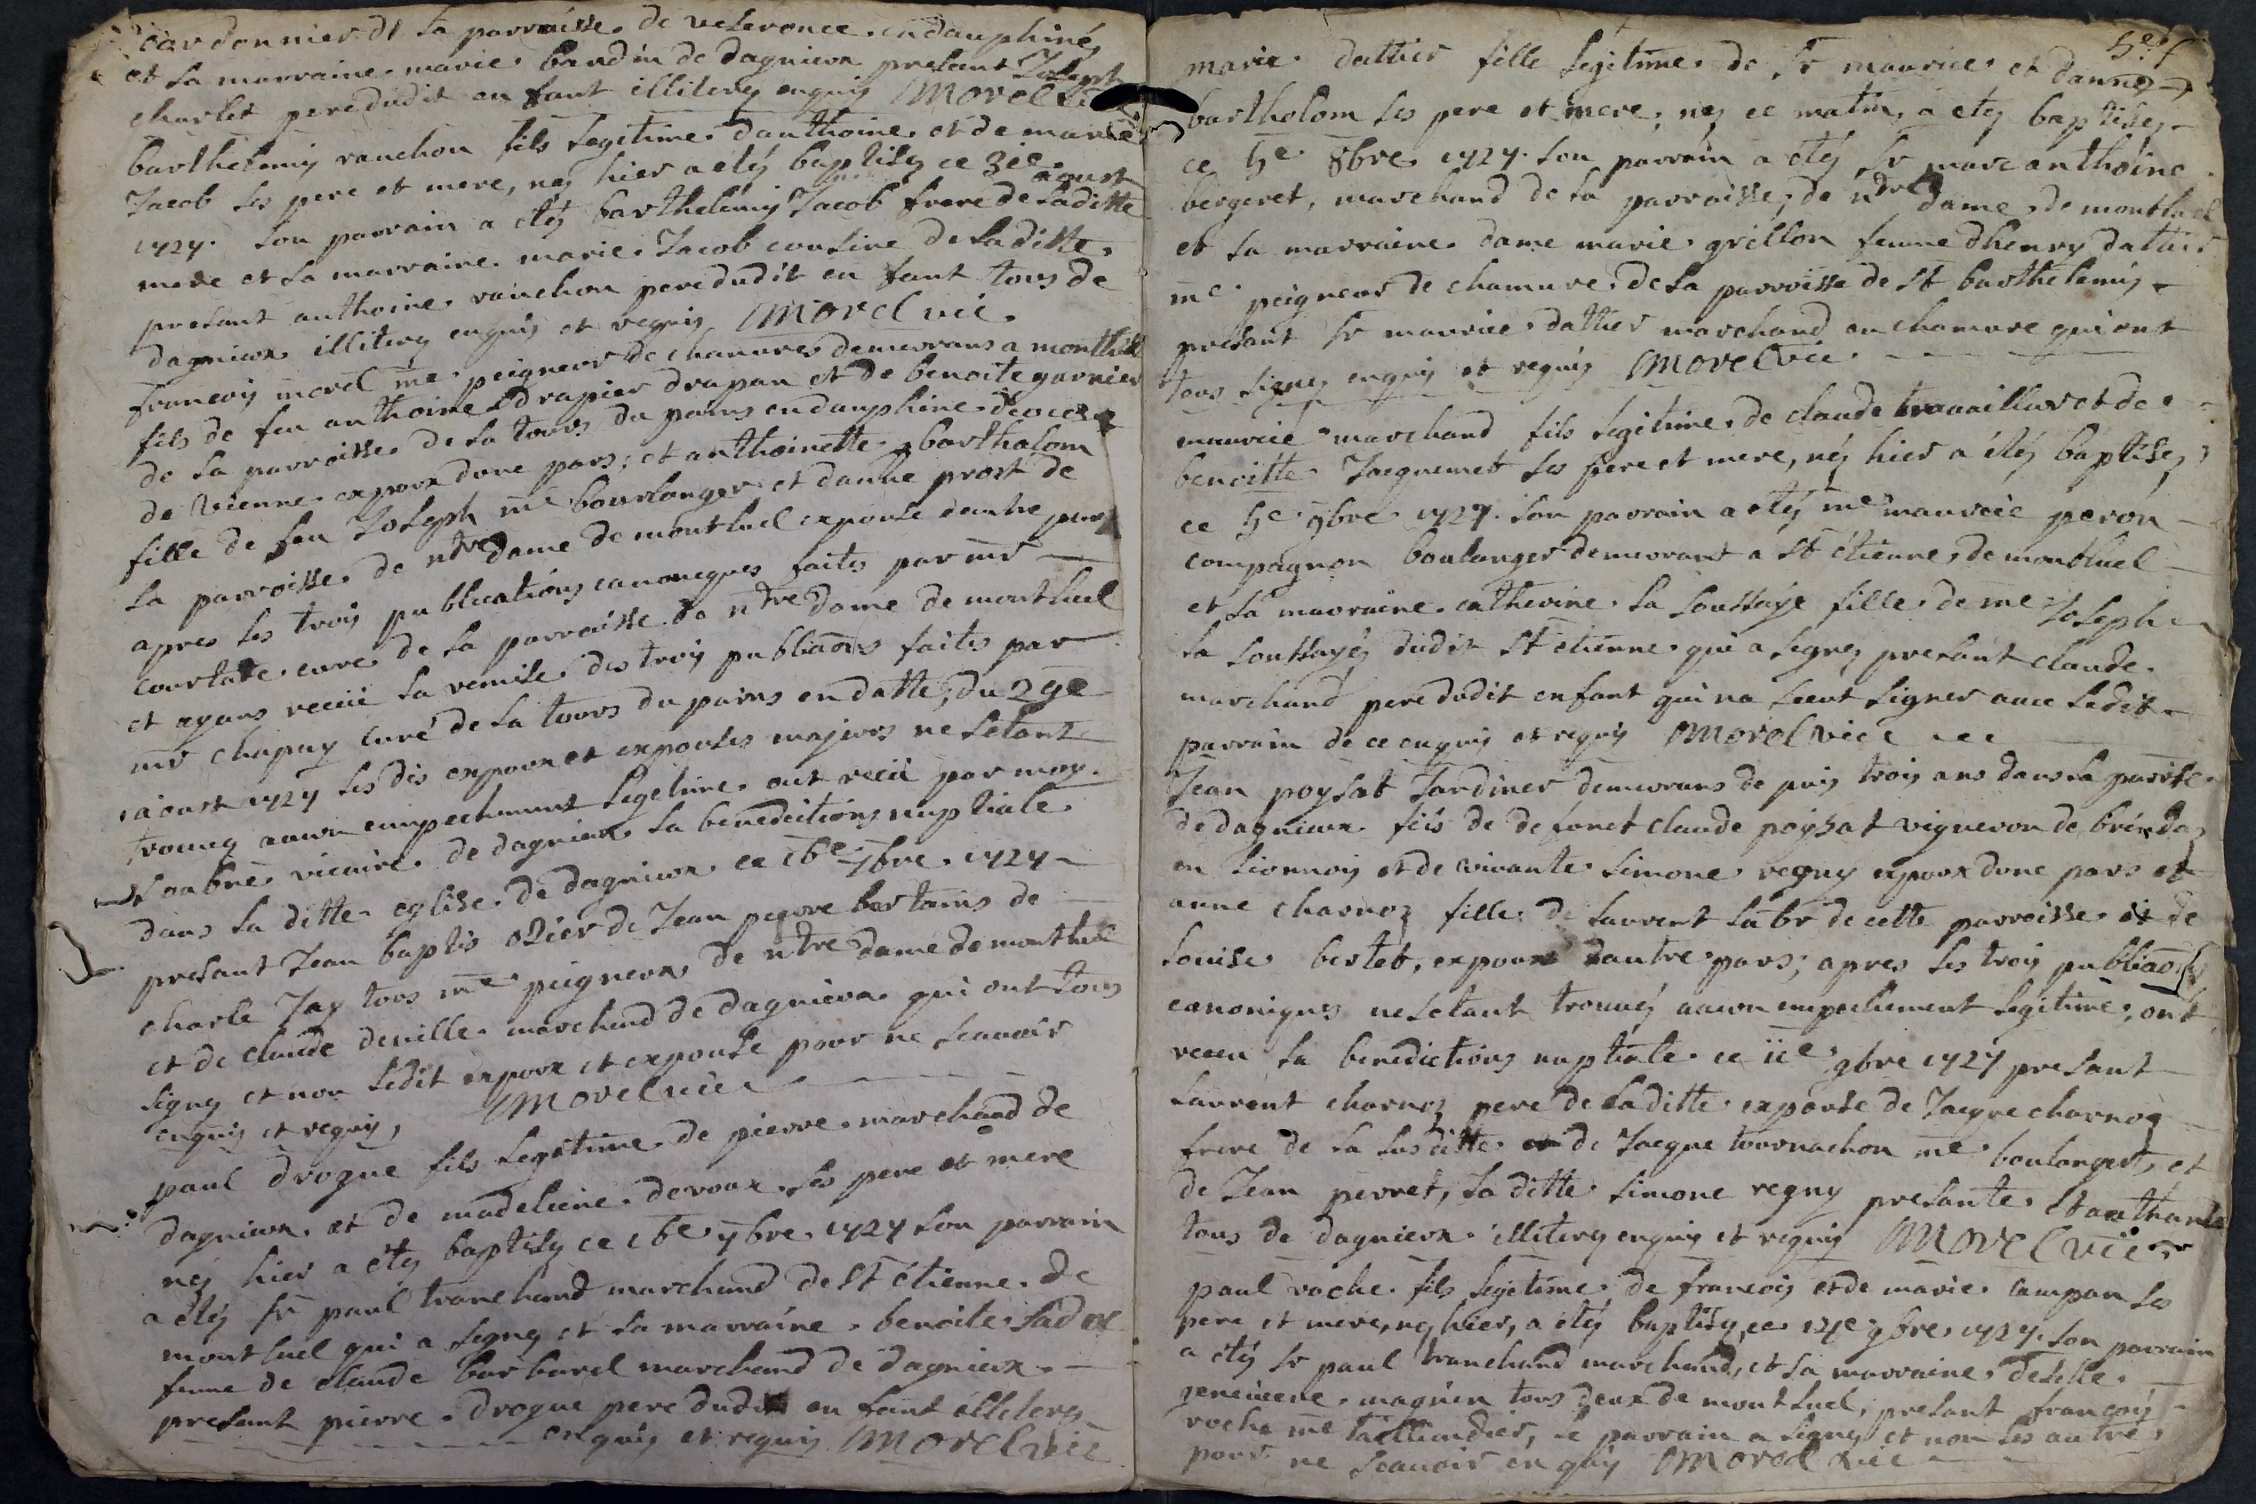 cordonnier de la parroisse de veseronce en dauphiné,
et sa marraine marie baudin de dagnieux present Joseph
charlet pere dudit enfant illiterez enquis Morel vic
barthelemy ranchon fils legitime danthoine et de marie
Jacob ses pere et mere, nez hier a etéz baptisez ce 3ie aoust
1727. son parrain a etéz barthelemy Jacob frere de laditte
mere et sa marraine marie Jacob cousine de laditte,
presant anthoine ranchon pere dudit enfant tous de
dagnieux illiterez enquis et requis Morel vic.
francois morel me peigneur de chanvre demeurans a montluel
fils de feu anthoine drapier drapan et de benoite garnier
de la parroisse de la tours du pains en dauphine diocez
de vienne expoux dune pars; et anthoinette bartholom
fille de feu Joseph me boulanger et danne prost de
la parroisse de ntre dame de montluel expouse dautre pars
apres les trois publications canoniques faites par mr
courlate curé de la parroisse de ntre dame de montluel
et ayans receü la remise des trois publiaons faites par
mr chapuy curé de la tours du pains en datte du 29e
aoust 1727 les dis expoux et expouses majeurs ne setant
trouvez aucun empechement legitime ont receü par moy
soubné vicaire de dagnieux la benedictions nuptiale
dans la ditte eglise de dagnieux ce 16e 7bre 1727
presant Jean baptis ozier de Jean pierre bertains de
charle Jay tous me peigneux de ntre dame de montluel
et de claude deville marchand de dagnieux qui ont tous
signez et non ledit expoux et expouse pour ne scavoir
enquis et requis, Morel vic
paul drogue fils legitime de pierre marchand de
dagnieux et de madeleine devoux ses pere et mere
nez hier a étéz baptisez ce 16e 7bre 1727 son parrain
a étéz sr paul tranchand marchand de St étienne de
montluel qui a signez et sa marraine benoite
femme de claude barbarel marchand de dagnieux
presant pierre drogue pere dudit enfant illiterez
enquis et requis Morel vic
5e f
marie dattier fille legitime de sr maurice et danne
bartholom ses pere et mere, nez ce matin, a etéz baptisez
ce 5e 8bre 1727. son parrain a étéz sr marc anthoine
bergeret, marchand de la parroisse de ntre dame de montluel
et sa marraine dame marie grillon femme dhenry dattier
me peigneur de chanvre de la parroisse de St barthelemy
presant sr maurice dattier marchand en chanvre qui ont
tous signez enquis et requis Morel vic
maurice marchand fils legitime de claude travailleur et de
benoitte Jacquemet ses pere et mere, néz hier a étéz baptisez
ce 5e 9bre 1727. son parrain a étéz me maurice peron
compagnon boulanger demeurant a St étienne de montluel
et sa marraine catherine la soussaye fille de me Joseph
la soussayéz dudit St etienne qui a signez presant claude
marchand pere dudit enfant qui na sceut signer avec ledit
parrain de ce enquis et requis Morel vic
Jean poysat Jardiner demeurans de puis trois ans dans la parrsse
de dagnieux fils de defunct claude poysat vigneron de
en lionnois et de vivante simone regny expoux dune pars et
anne charnoz fille de laurent labr de cette parroisse et de
louise bertet, expoux dautre pars; apres les trois publiaons
canoniques ne setant trouvéz aucun empechement legitime, ont
receu la benedictions nuptiale ce iie 9bre 1727 presant
laurent charnoz pere de laditte expouse de Jacque charnoz
frere de la susditte de Jacque tournachon me boulanger, et
de Jean perret, laditte simone regny presante
tous de dagnieux illiterez enquis et requis Morel vic
paul roche fils legitime de francois et de marie campan ses
pere et mere, nez hier, a étéz baptisez, ce 9bre 1727. son parrain
a etéz sr paul tranchand marchand, et sa marraine delelle
genevieve magnien tous deux de montluel, presant francois
roche me taillandier, le parrain a signez et non les autre,
pour ne scavoir enquis Morel vic